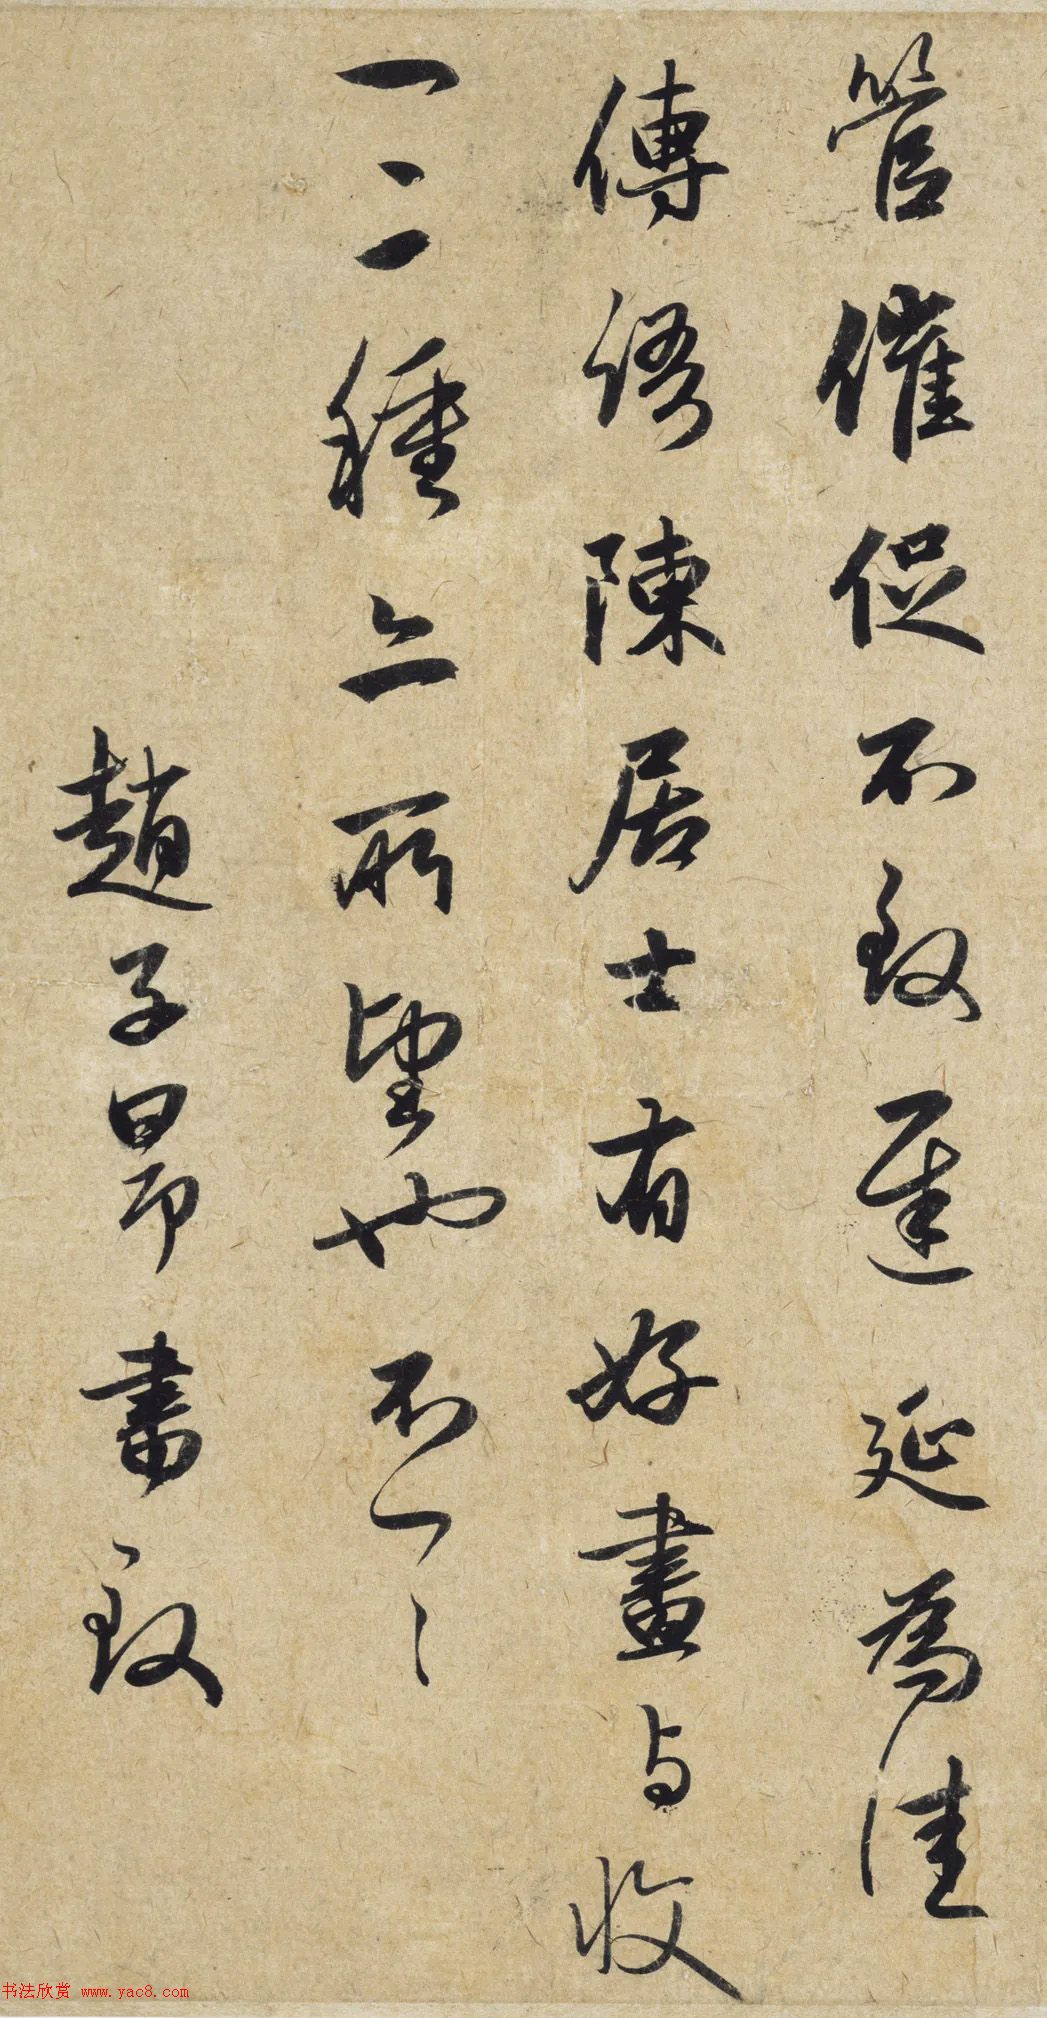 管催促不致遲延為佳
傳語陳居士有好畫与收
一二種亦所望也不一一
趙子昂書致
书法欣赏 www.yac8.com